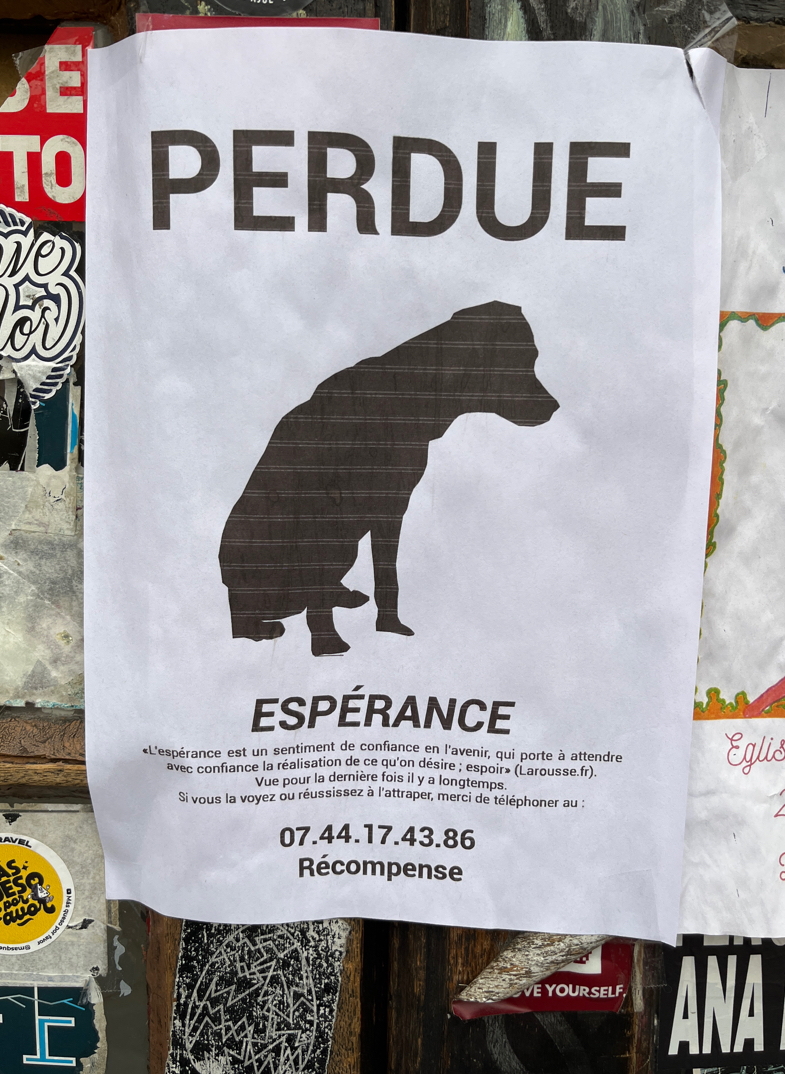 PERDUE
ESPÉRANCE
«L'espérance est un sentiment de confiance en l'avenir, qui porte à attendre
avec confiance la réalisation de ce qu'on désire ; espoir» (Larousse.fr).
Vue pour la dernière fois il y a longtemps.
Si vous la voyez ou réussissez à l'attraper, merci de téléphoner au :
07.44.17.43.86
Récompense
TO
por
favor
VE YOURSELF.
ANA
Eglis